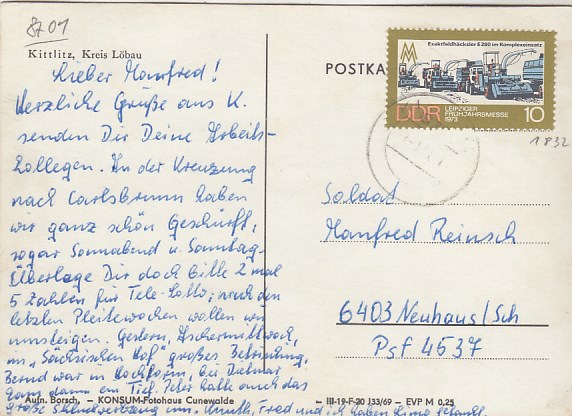 8701
Kittlitz, Kreis Löbau
Lieber Manfred!
Herzliche Grüße aus K.
senden Dir Deine Arbeits-
kollegen. An der Kreuzung
nach Carlsbrunn haben
wir ganz schön geschürft,
sogar Sonnabend u. Sonntag.
Überlege Dir doch bitte 2 mal
5 Zahlen für Tele-Lotto, nach den
letzten Pleitewochen wollen wir
umsteigen. Gestern, Aschermittwoch,
im "Sächsischen Hof" großes Besäufnis,
Bernd war in Hochform, bei Dietmar
kam dann ein Tief. Peter hatte auch das
große
Aufn. Borsch, – KONSUM-Fotohaus Cunewalde
POSTKA
Exaktfeldhäcksler E 280 im Komplexeinsatz
MM
DDR
LEIPZIGER
FRÜHJAHRSMESSE
1973
10
1832
Soldat
Manfred Reinsch
6403 Neuhaus/Sch
PSF 4537
III-19-F-20 J33/69 – EVP M 0,25